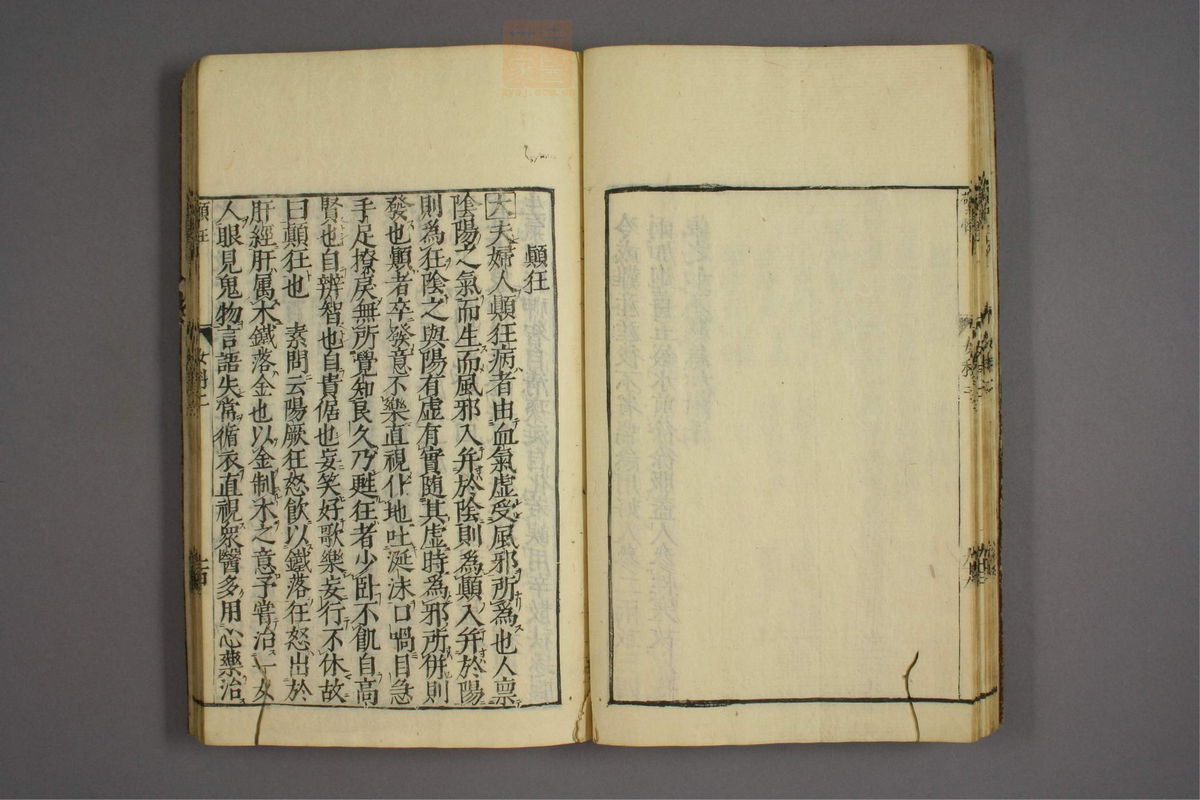 顛狂
大夫婦人顛狂病者由血氣虛受風邪所為也人禀
陰陽之氣而生而風邪入并於陰則為顛入并於陽
則為狂陰之與陽有虛有實隨其虛時為邪所併則
發也顛者卒發意不樂直視仆地吐涎沫口喎目急
手足撩戾無所覺知良久乃甦狂者少卧不飢自高
賢也自辨智也自貴倨也妄笑好歌樂妄行不休故
曰顛狂也　素問云陽厥狂怒飲以鐵落狂怒出於
肝經肝属木鐵落金也以金制木之意予嘗治一女
人眼見鬼物言語失常循衣直視衆醫多用心藥治
顛狂
女科二